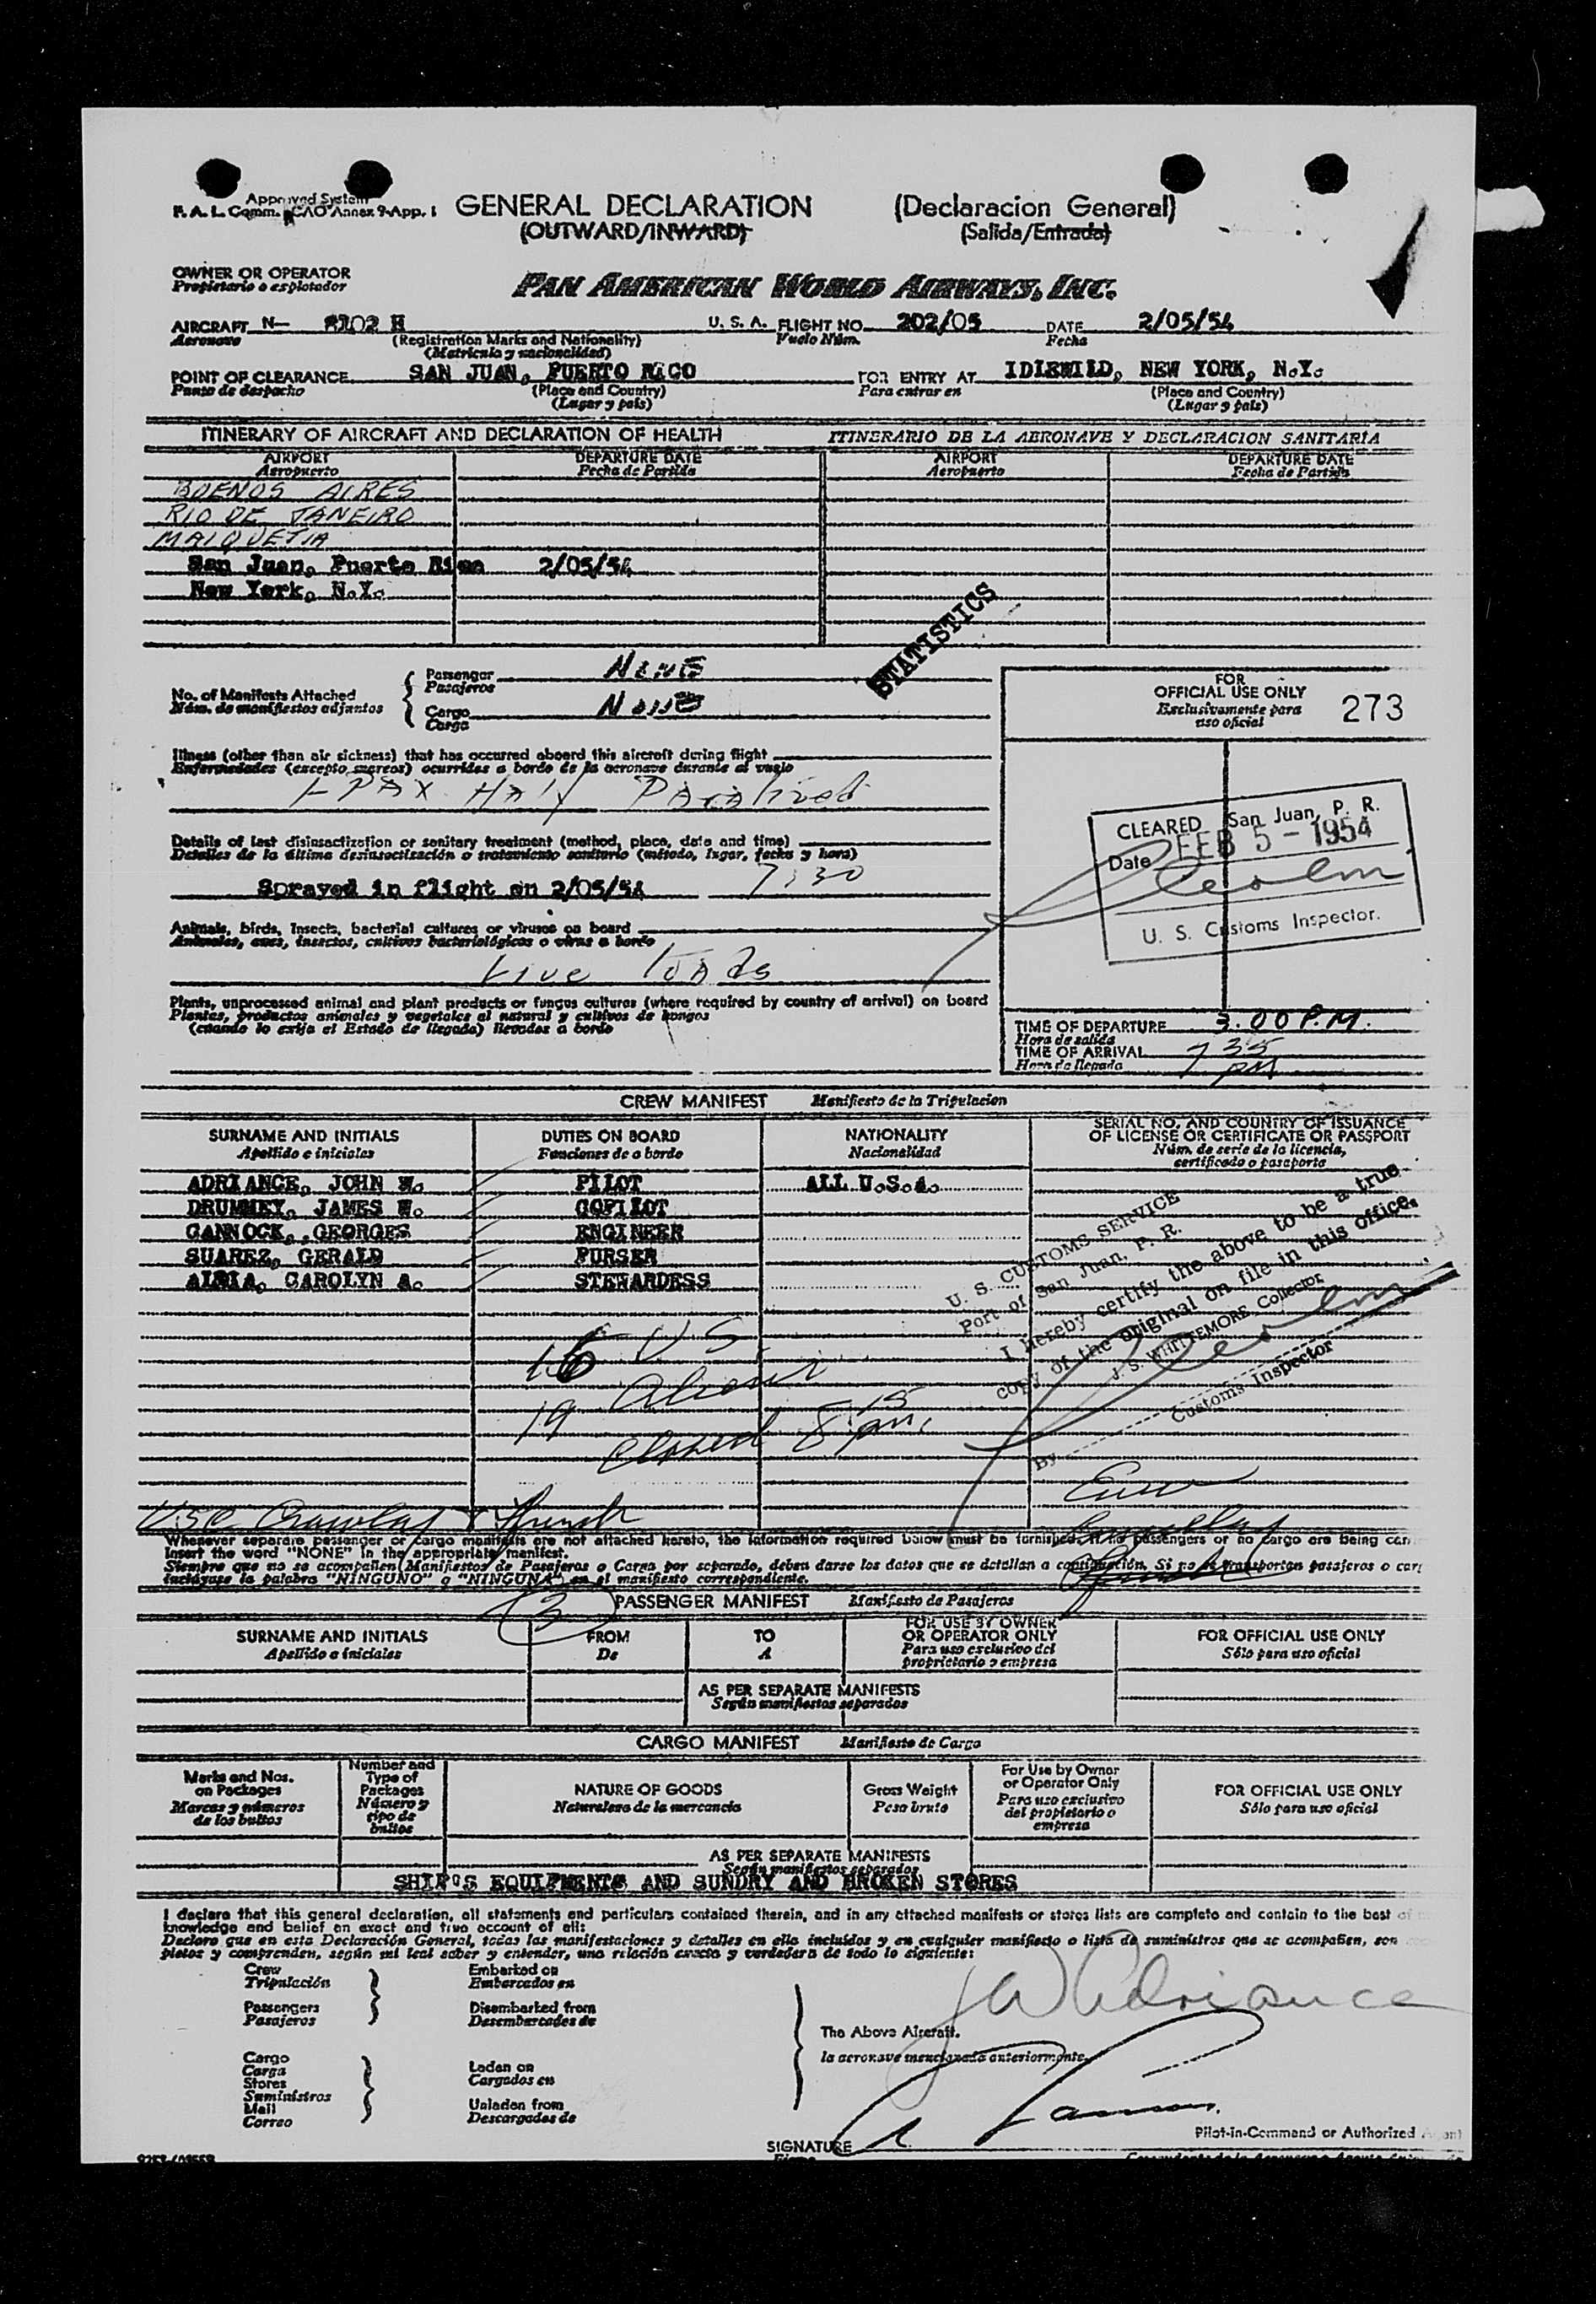 Approved System
F. A. L. Comm. ICAO Annex 9-App. 1
GENERAL DECLARATION (Declaracion General)
(OUTWARD/INWARD) (Salida/Entrada)
OWNER OR OPERATOR
Propietario o explotador
PAN AMERICAN WORLD AIRWAYS, INC.
AIRCRAFT N- 8102 H U. S. A. FLIGHT NO. 202/05 DATE 2/05/54
Aeronave (Registration Marks and Nationality) Vuelo Núm. Fecha
(Matricula y nacionalidad)
POINT OF CLEARANCE SAN JUAN, PUERTO RICO FOR ENTRY AT IDLEWILD, NEW YORK, N.Y.
Punto de despacho (Place and Country) Para entrar en (Place and Country)
(Lugar y país) (Lugar y país)
ITINERARY OF AIRCRAFT AND DECLARATION OF HEALTH ITINERARIO DE LA AERONAVE Y DECLARACION SANITARIA
AIRPORT DEPARTURE DATE AIRPORT DEPARTURE DATE
Aeropuerto Fecha de Partida Aeropuerto Fecha de Partida
BUENOS AIRES
RIO DE JANEIRO
MAIQUETIA
San Juan, Puerto Rico 2/05/54
New York, N.Y.
STATISTICS
No. of Manifests Attached
Núm. de manifiestos adjuntos
Passenger NONE
Pasajeros
Cargo NONE
Carga
FOR
OFFICIAL USE ONLY
Exclusivamente para
uso oficial
273
Illness (other than air sickness) that has occurred aboard this aircraft during flight
Enfermedades (excepto mareos) ocurridas a bordo de la aeronave durante el vuelo
1 PAX Half Paralized
Details of last disinsectization or sanitary treatment (method, place, date and time)
Detalles de la última desinsectización o tratamiento sanitario (método, lugar, fecha y hora)
Sprayed in flight on 2/05/54 7:30
Animals, birds, insects, bacterial cultures or viruses on board
Animales, aves, insectos, cultivos bacteriológicos o virus a bordo
Live Toads
Plants, unprocessed animal and plant products or fungus cultures (where required by country of arrival) on board
Plantas, productos animales y vegetales al natural y cultivos de hongos
(cuando lo exija el Estado de llegada) llevados a bordo
CLEARED San Juan, P. R.
Date FEB 5 - 1954
U. S. Customs Inspector.
TIME OF DEPARTURE 3.00 P.M.
Hora de salida
TIME OF ARRIVAL 7 35
Hora de llegada PM
CREW MANIFEST Manifiesto de la Tripulacion
SURNAME AND INITIALS DUTIES ON BOARD NATIONALITY SERIAL NO. AND COUNTRY OF ISSUANCE
OF LICENSE OR CERTIFICATE OR PASSPORT
Apellido e iniciales Funciones de a bordo Nacionalidad Núm. de serie de la licencia,
certificado o pasaporte
ADRIANCE, JOHN W. PILOT ALL U.S.A.
DRUMMEY, JAMES W. COPILOT
CANNOCK, GEORGES ENGINEER
SUAREZ, GERALD PURSER
CAROLYN A. STEWARDESS
U. S. CUSTOMS SERVICE
Port of San Juan, P. R.
I hereby certify the above to be a true
copy of the original on file in this office.
J. S. WHITTEMORE, Collector
By
Customs Inspector
16 US
19
Closed 8 15 pm.
Whenever separate passenger or cargo manifests are not attached hereto, the information required below must be furnished. If no passengers or no cargo are being
Insert the word "NONE" in the appropriate manifest.
Siempre que no se acompañen Manifiestos de Pasajeros o Carga por separado, deben darse los datos que se detallan a continuación. Si no se transportan pasajeros o
inclúyase la palabra "NINGUNO" o "NINGUNA" en el manifiesto correspondiente.
3
PASSENGER MANIFEST Manifiesto de Pasajeros
SURNAME AND INITIALS FROM TO FOR USE BY OWNER
OR OPERATOR ONLY FOR OFFICIAL USE ONLY
Apellido e iniciales De A Para uso exclusivo del
propietario o empresa Sólo para uso oficial
AS PER SEPARATE MANIFESTS
Según manifiestos separados
CARGO MANIFEST Manifiesto de Carga
Marks and Nos.
on Packages
Marcas y números
de los bultos
Number and
Type of
Packages
Número y
tipo de
bultos
NATURE OF GOODS
Naturaleza de la mercancía
Gross Weight
Peso bruto
For Use by Owner
or Operator Only
Para uso exclusivo
del propietario o
empresa
FOR OFFICIAL USE ONLY
Sólo para uso oficial
AS PER SEPARATE MANIFESTS
Según manifiestos separados
SHIP'S EQUIPMENTS AND SUNDRY AND BROKEN STORES
I declare that this general declaration, all statements and particulars contained therein, and in any attached manifests or stores lists are complete and contain to the best of
knowledge and belief an exact and true account of all:
Declaro que en esta Declaración General, todas las manifestaciones y detalles en ella incluidos y en cualquier manifiesto o lista de suministros que se acompañen, son
pletos y comprenden, según mi leal saber y entender, una relación exacta y verdadera de todo lo siguiente:
Crew Embarked on
Tripulación Embarcados en
Passengers Disembarked from
Pasajeros Desembarcados de
Cargo Laden on
Carga Cargados en
Stores
Suministros
Mail Unladen from
Correo Descargados de
The Above Aircraft.
la aeronave mencionada anteriormente.
J W Adriance
SIGNATURE
Pilot-in-Command or Authorized